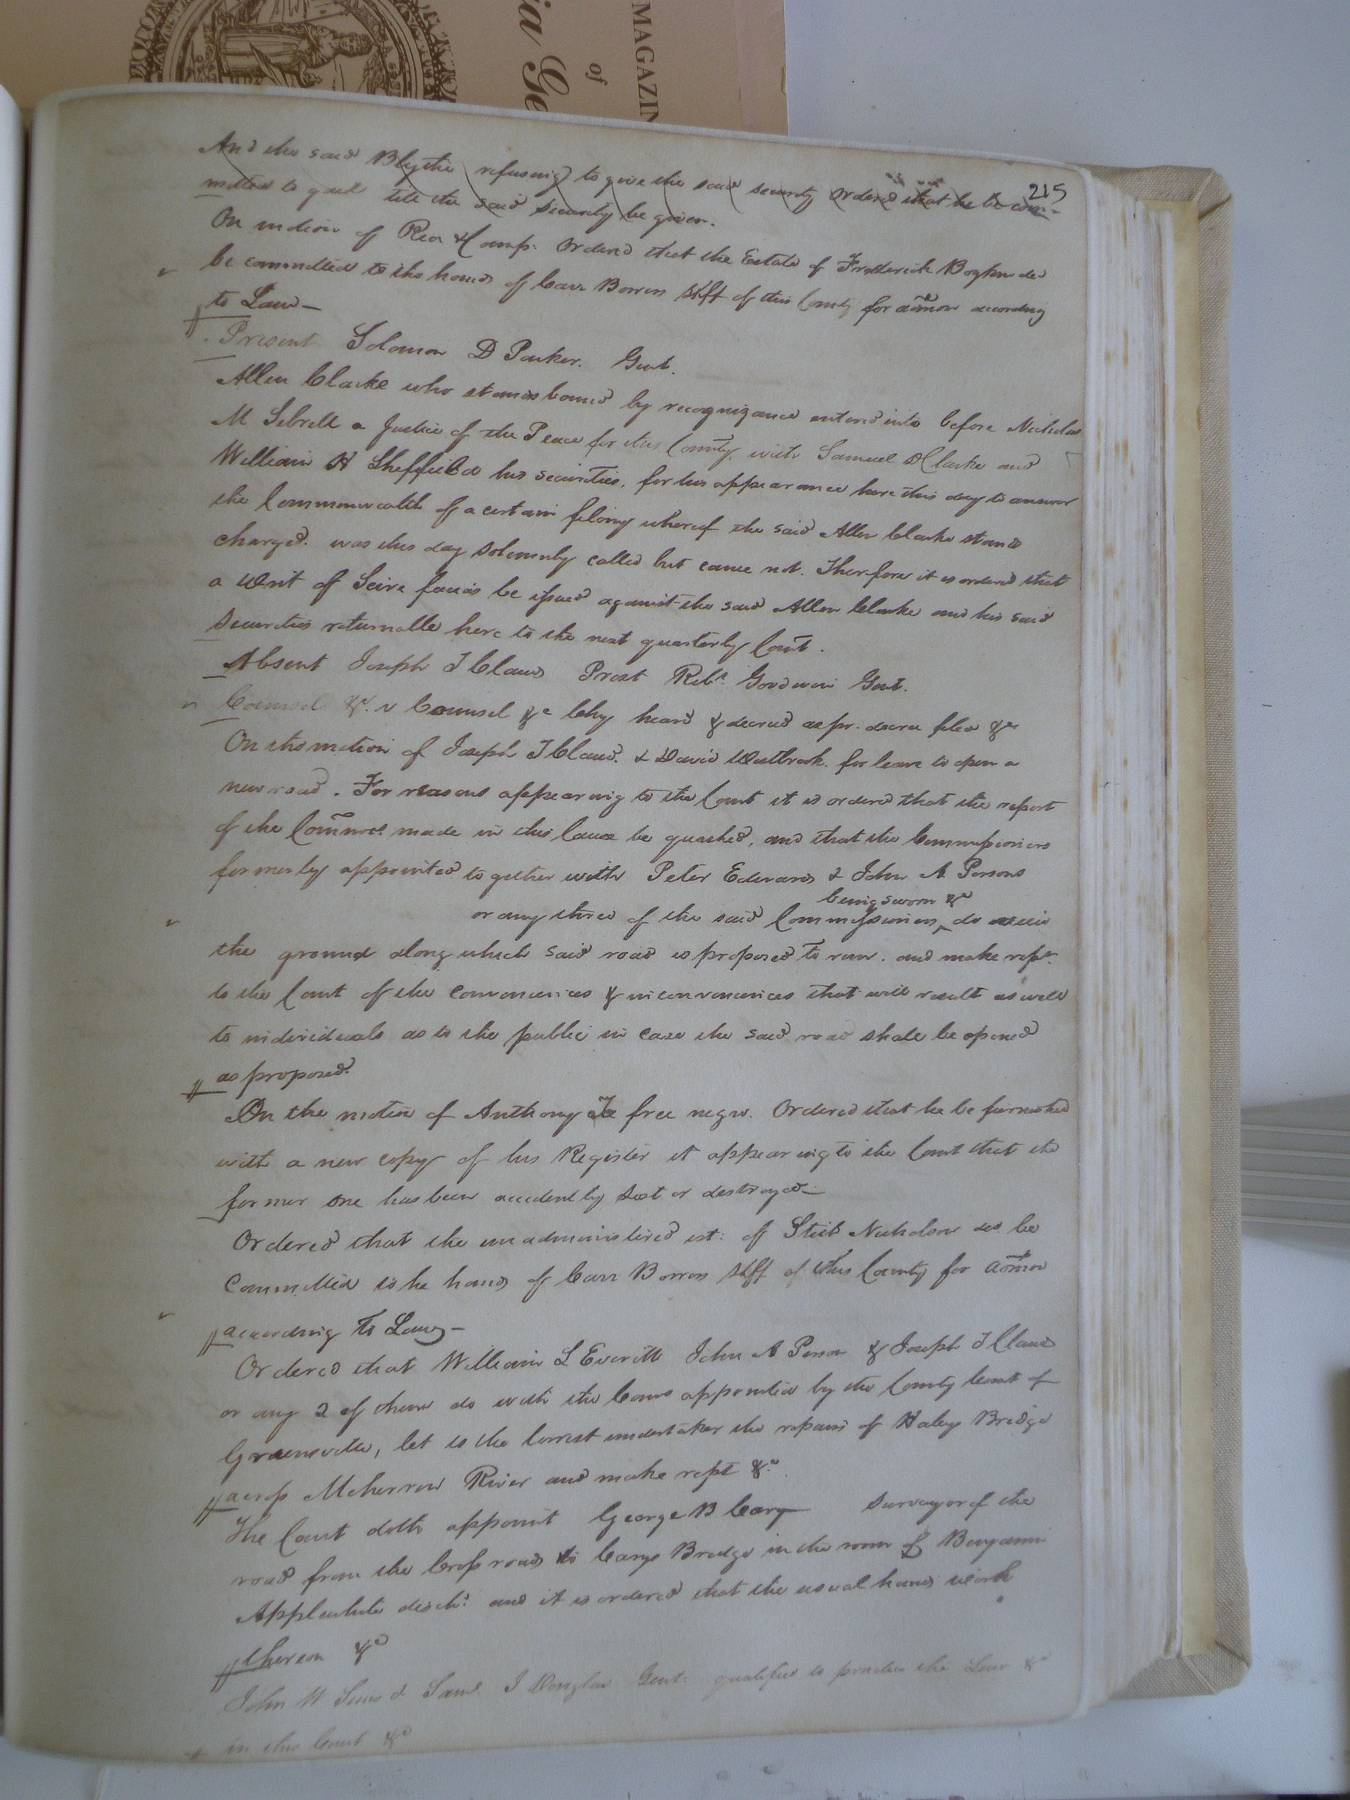 MAGAZIN
of
ia Ge
215
And the said Blythe refusing to give the said security ordered that he be com-
mitted to goal till the said security be given.
On motion of Rea & Comp. Ordered that the Estate of Frederick Boykin decd
be committed to the hands of Carr Bowers Shff of this County for admon according
to Law—
Present Solomon D Parker. Gent.
Allen Clarke who stands bound by recognizance entered into before Nicholas
M Sebrell a Justice of the Peace for this County with Samuel Clarke and
William H Sheffield his securities, for his appearance here this day to answer
the Commonwealth of a certain felony whereof the said Allen Clarke stands
charged. was this day solemnly called but came not. Therefore it is ordered that
a Writ of Scire facias be issued against the said Allen Clarke and his said
Securities returnable here to the next quarterly Court.
Absent Joseph T Claud Preast Robt. Goodwin Gent.
Counsel &c. v Counsel &c Chy heard & decreed as pr. decree filed &c
On the motion of Joseph T Claud. & David Westbrook. for leave to open a
new road. For reasons appearing to the Court it is ordered that the report
of the Commrs. made in this Cause be quashed, and that the Commissioners
formerly appointed together with Peter Edwards & John A Persons
being sworn &c
or any three of the said Commissioners, do view
the ground along which said road is proposed to run. and make rept.
to the Court of the conveniences & inconveniences that will result as well
to individuals as to the public in case the said road shall be opened
as proposed.
On the motion of Anthony free negro. Ordered that he be furnished
with a new copy of his Register it appearing to the Court that the
former one has been accidently lost or destroyed—
Ordered that the unadministered est: of Nicholson decd be
Committed to he hands of Carr Bowers Shff of this County for admon
according to Law—
Ordered that William L Everitt John A Person & Joseph T Claud
or any 2 of them do with the Coms appointed by the County Court of
Greensville, let to the lowest undertaker the repairs of Haleys Bridge
across Meherron River and make rept &c.
The Court doth appoint George B Cary surveyor of the
road from the Cross roads to Carys Bridge in the room of Benjamin
Applewhite disch: and it is ordered that the usual hands work
thereon &c
John W Saml J Douglas Gent: qualified to practice the Law &c
in this Court &c